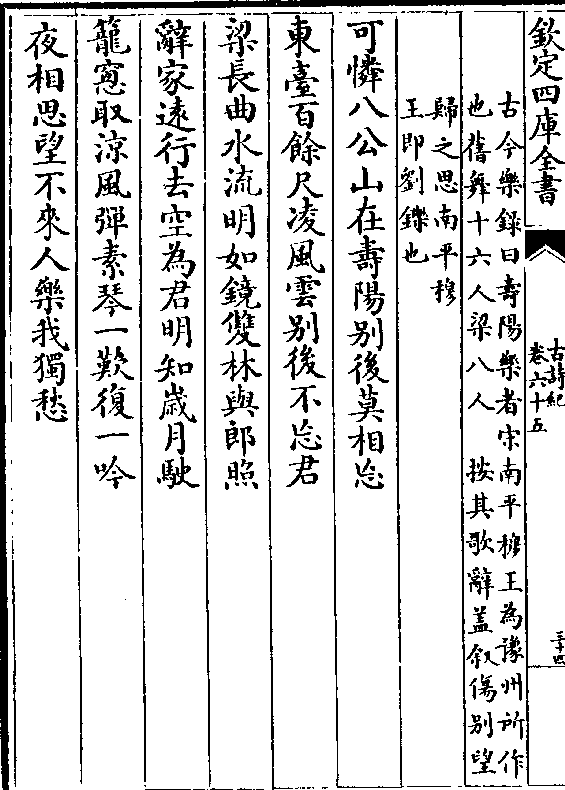 欽定四庫全書
古詩紀
卷六十五
三十四
古今樂錄曰壽陽樂者宋南平穆王為豫州所作
也舊舞十六人梁八人 按其歌辭蓋叙傷别望
歸之思南平穆
王即劉鑠也
可憐八公山在壽陽别後莫相忘
東臺百餘尺凌風雲别後不忘君
梁長曲水流明如鏡雙林與郎照
辭家遠行去空為君明知歲月駛
籠窓取涼風彈素琴一歎復一吟
夜相思望不來人樂我獨愁